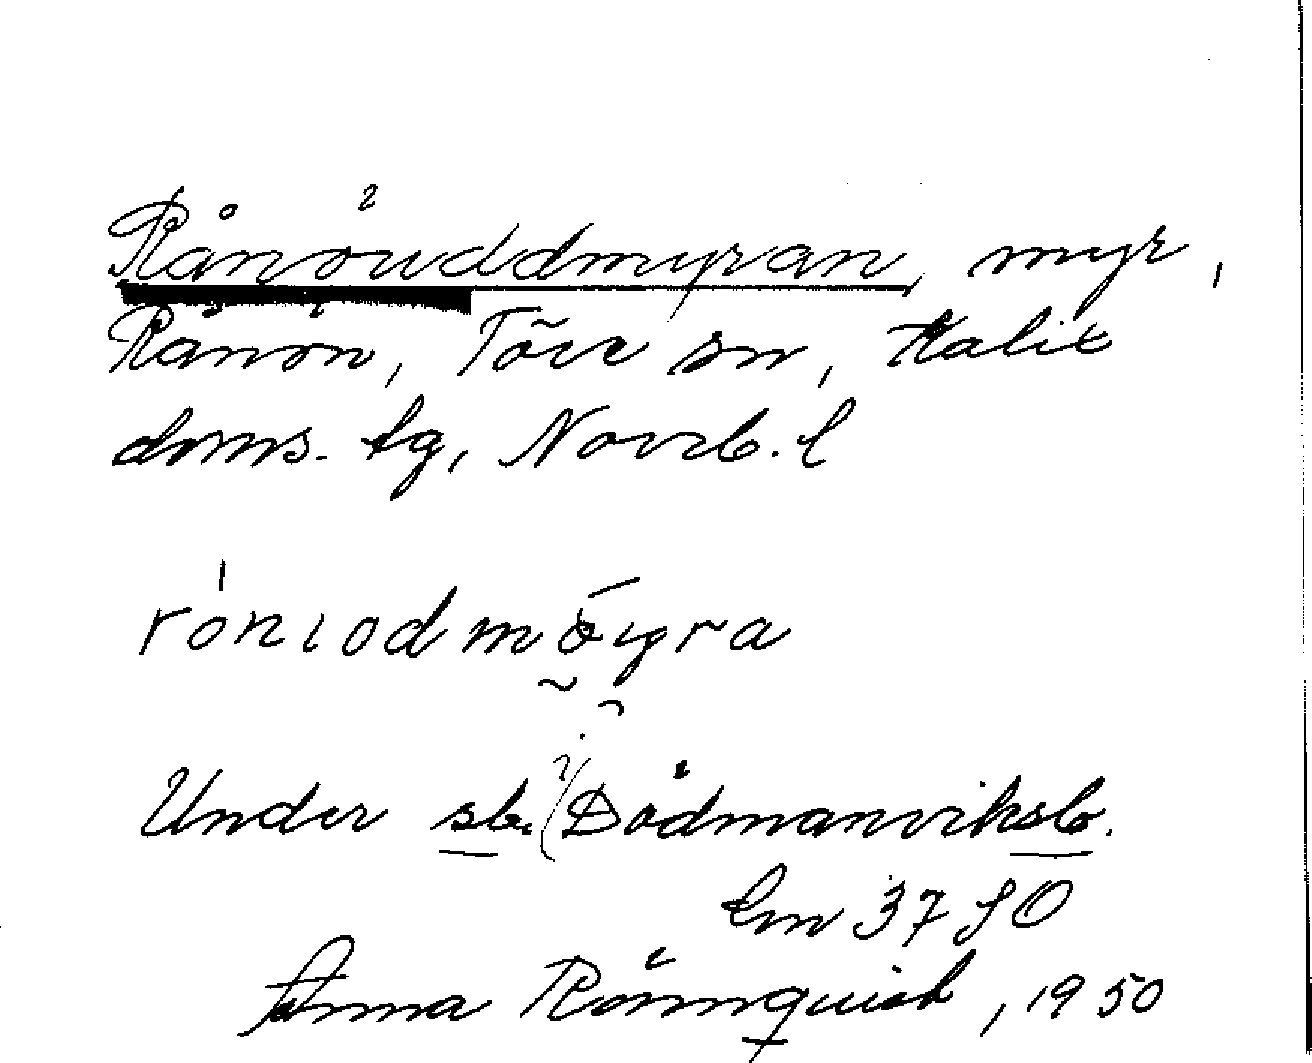 Rånöuddmyran, myr,
Rånön, Töre sn, Kalix
doms. tg, Norrb. l
rönıodmöyra
Under sb. Dödmanviksb.
Lm 37 SO
Anna Rönnquist, 1950